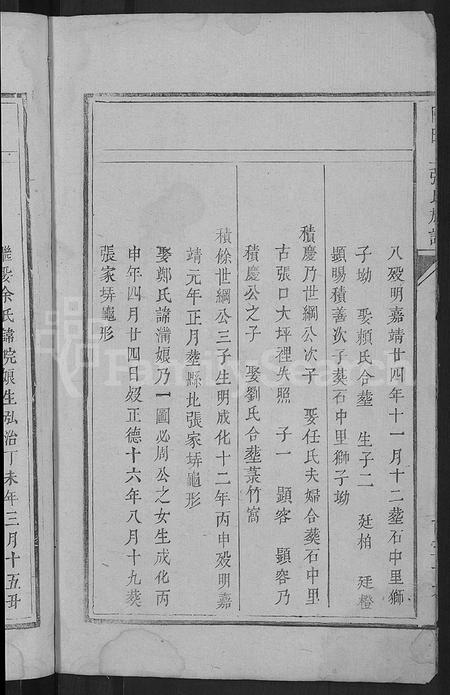 張氏族譜
八歿明嘉靖廿四年十一月十二塟石中里獅
子坳 娶賴氏合塟 生子二 廷柏 廷橙
顯賜積善次子葵石中里獅子坳
積慶乃世綱公次子 娶任氏夫婦合葵石中里
古張口大坪裡失照 子一 顯容 顯容乃
積慶公之子 娶劉氏合塟菉竹窩
積條世綱公三子生明成化十二年丙申殁明嘉
靖元年正月塟縣北張家塝龜形
娶鄭氏諱滿娘乃一圖必周公之女生成化丙
申年四月廿四日歿正德十六年八月十九葵
張家塝龜形
繼娶余氏諱院娘生弘治丁未年三月十五丑
FamilySearch